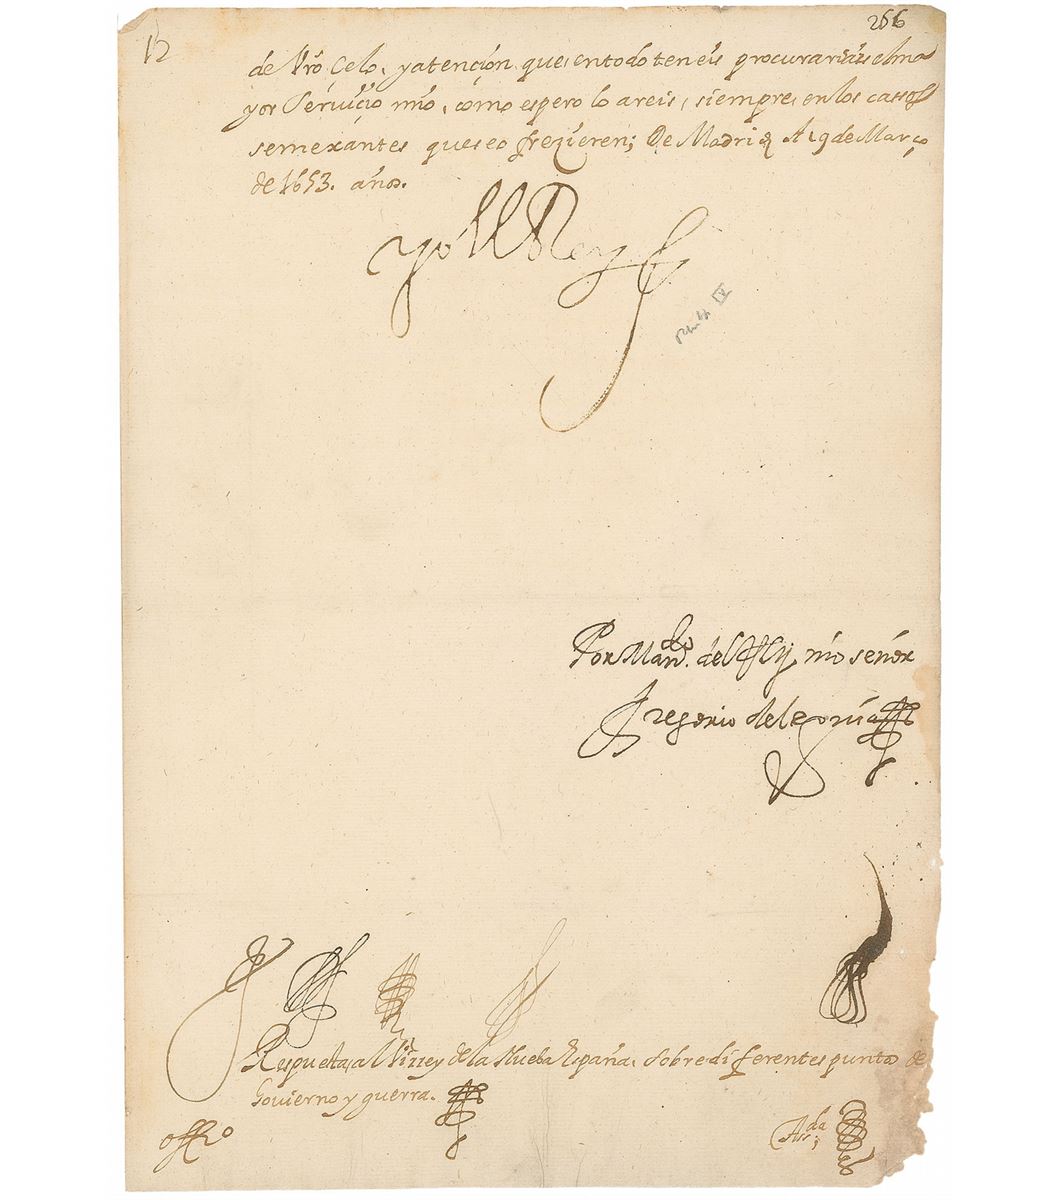 12
266
de Vrõ Celo, y atención que en todo teneis procurariais el ma
yor Seruicio mio, como espero lo areis, siempre, en los cassos
semexantes que se ofrezieren; De Madrid A 19 de Março
de 1653. años.
yo el Rey
Phil. IV
Por Mando. del Rey nro señor
Gregorio de leguia
Respuesta, al Virrey de la Nueba España. Sobre diferentes puntos de
Govierno y guerra.
offio